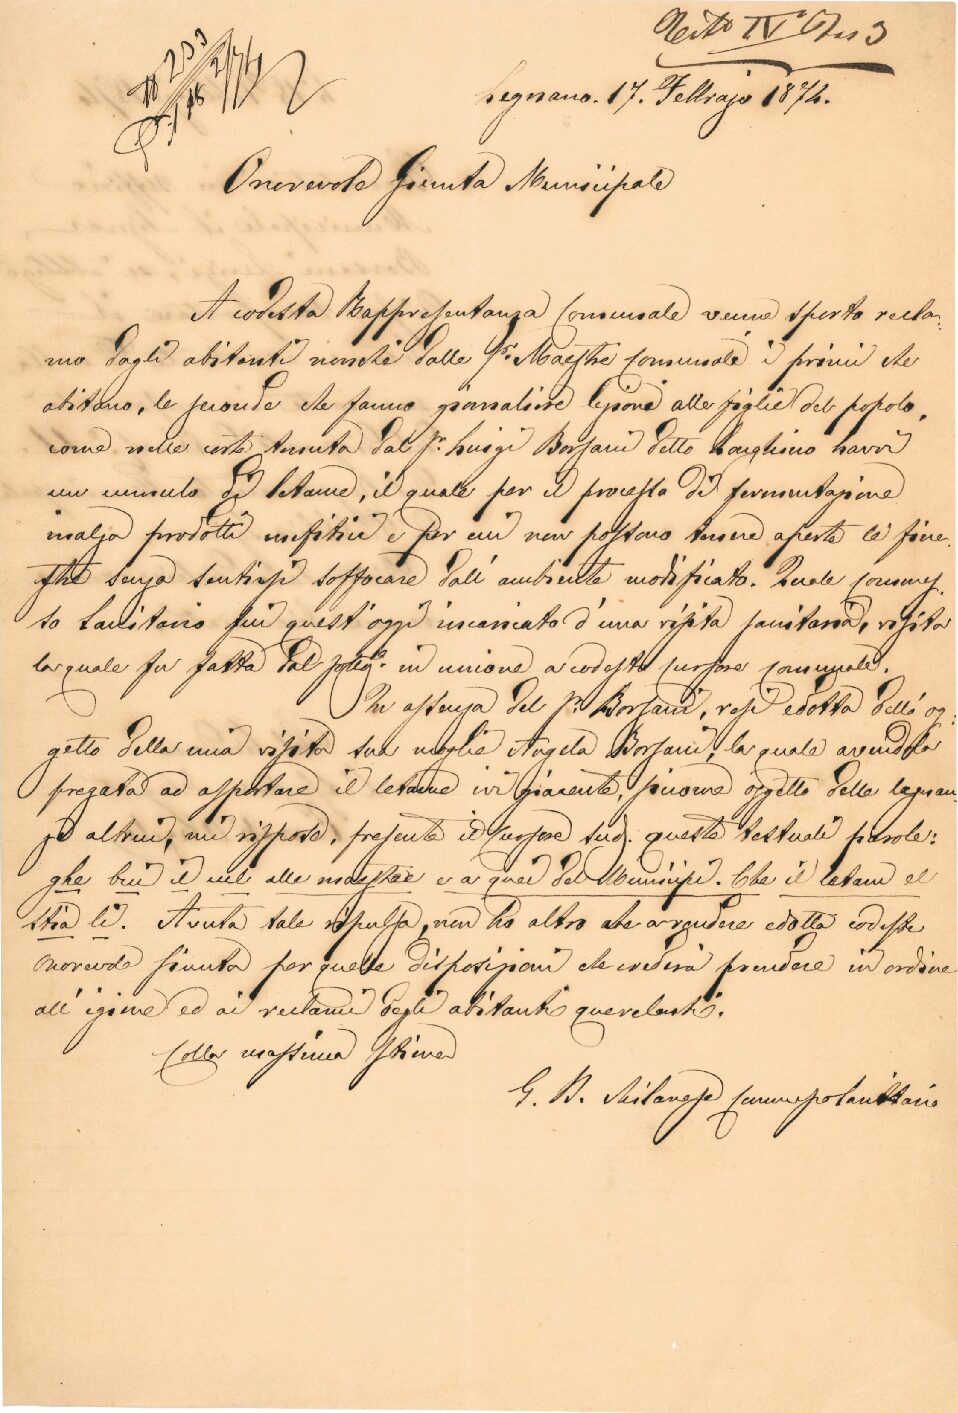 N 233
2/74
Tit.º IV
Legnano. 17. Febbrajo 1874.
Onorevole Giunta Municipale
A codesta Rappresentanza Comunale venne sporto recla-
mo dagli abitanti nonchè dalle Sig.re Maestre Comunali i primi che
abitano, le seconde che fanno giornaliere lezioni alle figlie del popolo,
come nella corte tenuta dal Sr. Luigi Borsani detto havvi
un cumulo di letame, il quale per il processo di fermentazione
inalza prodotti mefitici e per cui non possono tenere aperte le fine-
stre senza sentirsi soffocare dall'ambiente modificato. Quale Commes-
so Sanitario fui quest'oggi incaricato d'una visita sanitaria, visita
la quale fu fatta dal sott. in unione a codesto Cursore Comunale.
In assenza del Sr. Borsani, resi edotta dello og-
getto della mia visita sua moglie Angela Borsani, la quale avendola
pregata ad asportare il letame ivi giacente, siccome oggetto delle lagnan-
ze altrui, mi rispose, presente il Cursore sud. queste testuali parole:
ghe büi il cül alle maestre e a quei del Municipi. Che il letam el
stia lì. Avuta tale ripulsa, non ho altro che a rendere edotta codesta
Onorevole Giunta per quelle disposizioni che crederà prendere in ordine
all'igiene ed ai reclami degli abitanti querelanti.
Colla massima stima
G. B. Milanesi Commesso Sanitario